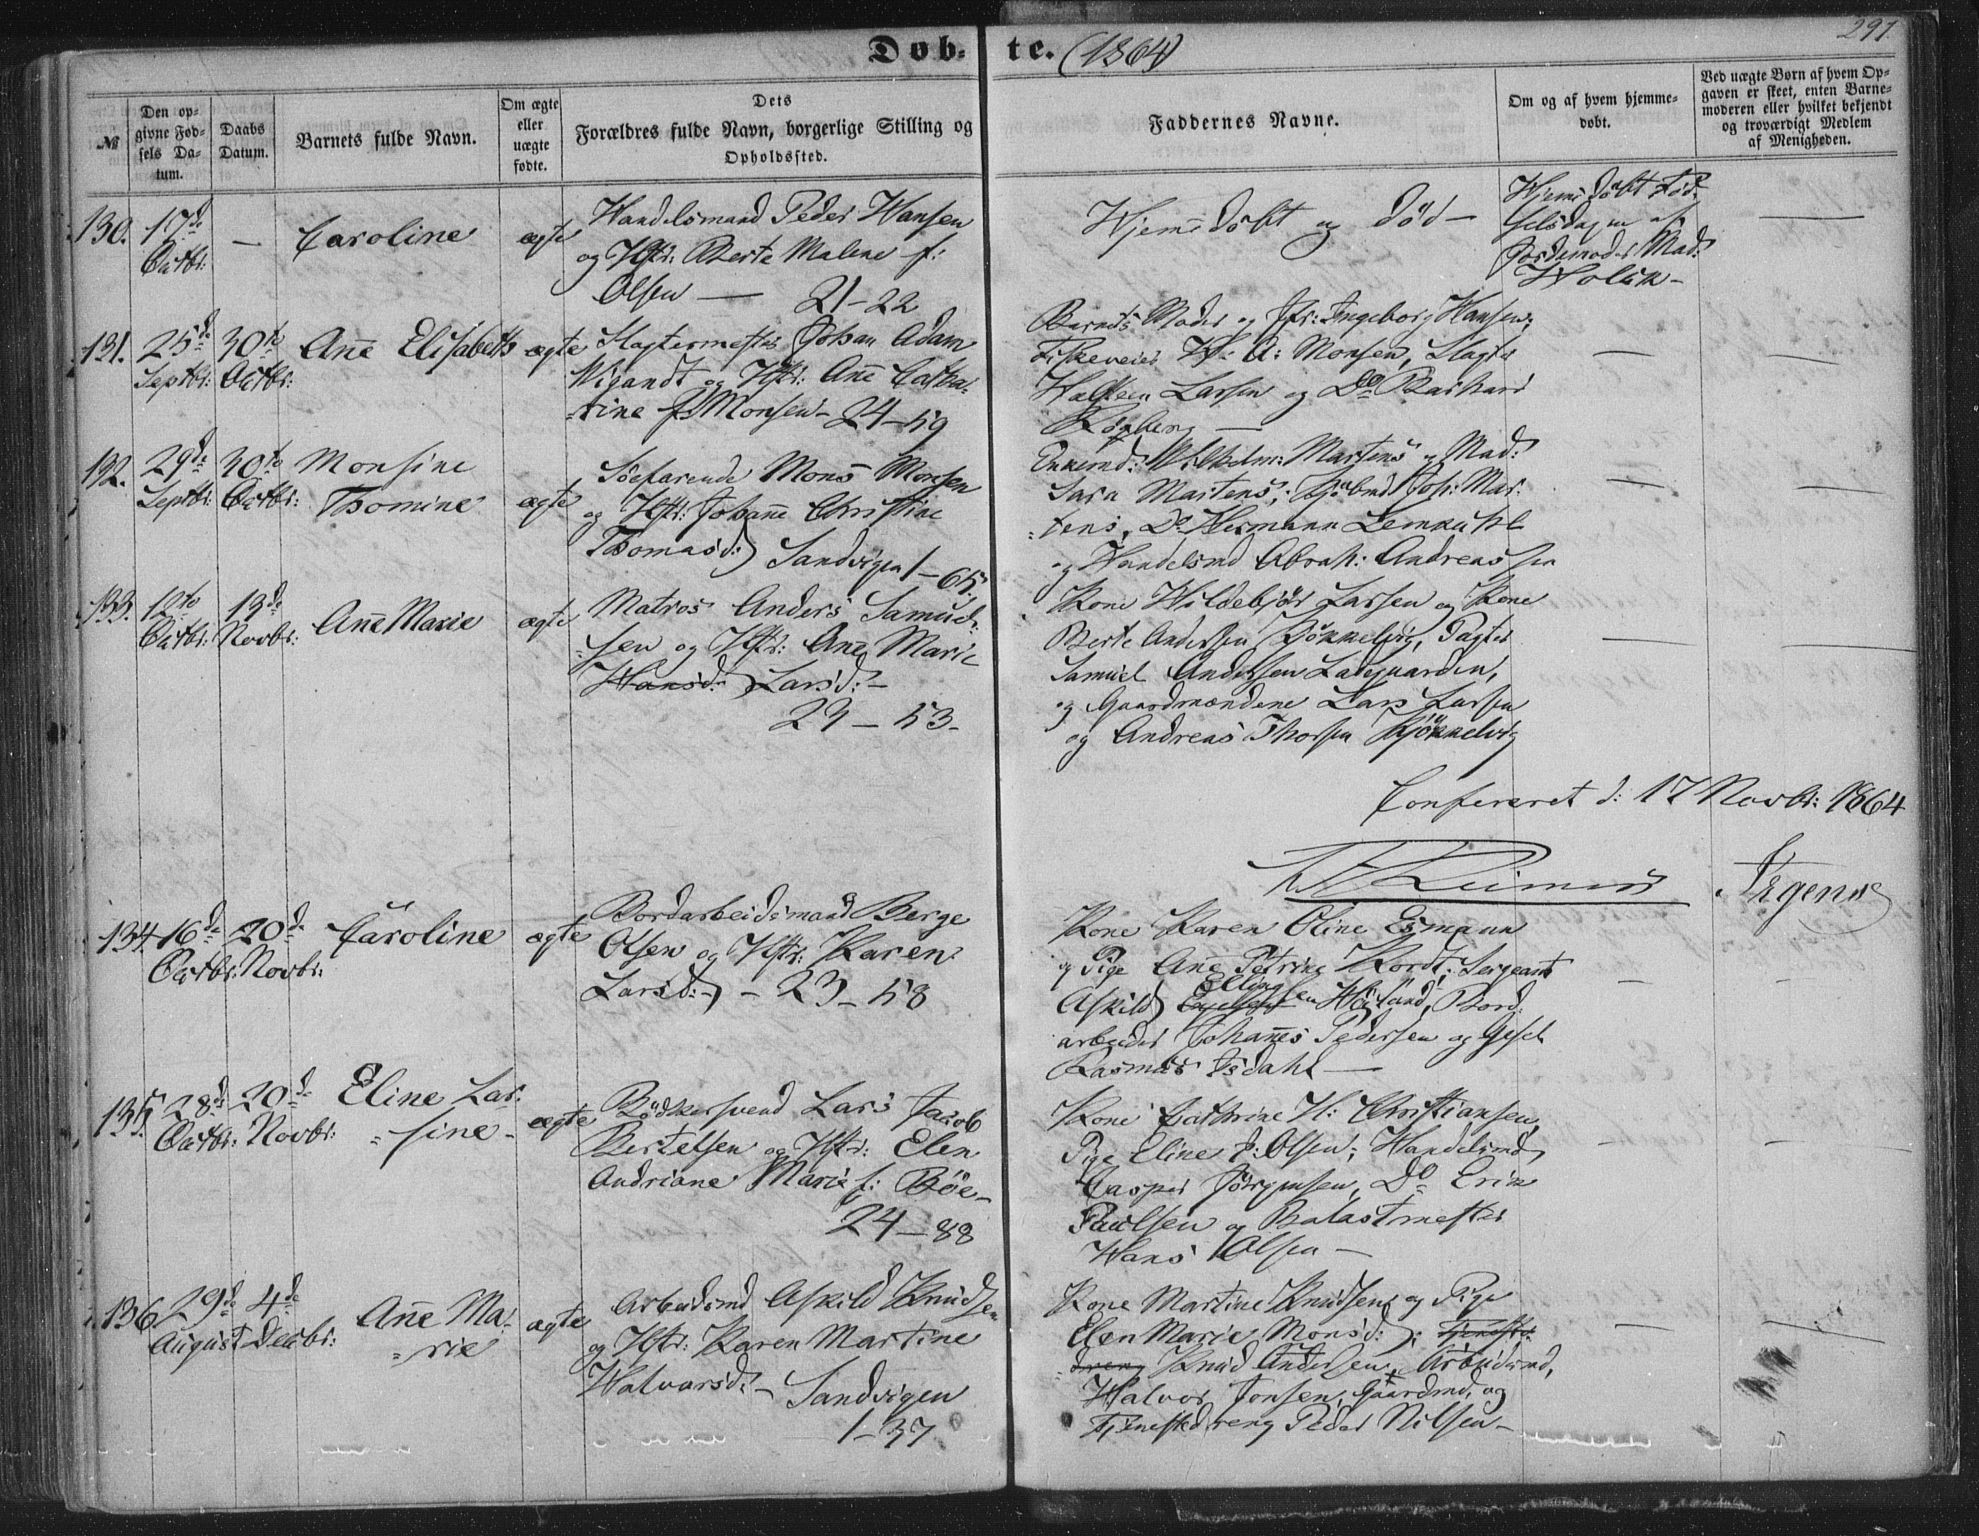 Döb-te. (1864)
291
№
Den op-
givne Fød-
sels Da-
tum.
Daabs
Datum.
Barnets fulde Navn.
Om ægte
eller
uægte
fødte.
Dets
Forældres fulde Navn, borgerlige Stilling og
Opholdssted.
Faddernes Navne.
Om og af hvem hjemme-
døbt.
Ved uægte Børn af hvem Op-
gaven er skeet, enten Barne-
moderen eller hvilket bekjendt
og troværdigt Medlem
af Menigheden.
130. 17de Octbr: — Caroline ægte
Handelsmand Peder Hansen
og Hstr: Berte Malene f:
Olsen — 21-22
Hjemedöbt og död —
Hjemedöbt Föd-
selsdagen af
Jordemoder Mad:
131. 25de Septbr: 30te Octbr: Ane Elisabeth ægte
Slagtermester Johan Adam
Wigandt og Hstr: Ane Catha-
-rine f. Monsen - 24-59
Barnets Moder og Jfr: Ingeborg Hansen;
H: A: Monsen, Slagter
Halsteen Larsen og Do
132. 29de Septbr: 30te Octbr: Monsine
Thomine ægte
Söefarende Mons Monsen
og Hstr: Johanne Christine
Thomasd: Sandvigen 1-65.
Wilhelm: Martens og Mad:
Sara Martens; Kjöbmd Joh: Mar-
-tens, Do Hermann Lemkuhl
og Handelsmd Abrah: Andreassen
133. 12te Octbr: 13de Novbr: Ane Marie ægte
Matros Anders Samuel-
-sen og Hstr: Ane Marie
Hansd: Larsd: -
29-53-
Kone Hildebjör Larsen og Kone
Berte Andersen Kjökkelvig,
Samuel Andersen Ladegaarden,
og Gaardmændene Lars Larsen
og Andreas Thorsen Kjökkelvig
Confereret d: 17 Novbr: 1864
134. 16de Octbr: 20de Novbr: Caroline ægte
Bordarbeidsmand Berge
Olsen og Hstr: Karen
Larsd: - 23-58
Kone Karen Oline Esmann
og Pige Ane Petrine Kordt; Sergeant
Askild Ellingsen Höiland, Bord-
arbeider Johannes Pedersen og Gesel
Rasmus Isdahl —
135. 28de Octbr: 20de Novbr: Eline Lar-
-sine - ægte
Bödkersvend Lars Jacob
Bertelsen og Hstr: Elen
Andriane Marie f: Böe -
24-88
Kone Cathrine H: Christiansen,
Pige Eline P: Olsen; Handelsmd
Casper Jörgensen, Do Erik
Paulsen og Balastmester
Hans Olsen —
136. 29de August 4de Decbr: Ane Ma-
-rie ægte
Arbeidsmd Askild Knudsen
og Hstr: Karen Martine
Halvorsd: - Sandvigen
1-37
Kone Martine Knudsen og Pige
Elen Marie Monsd:; Tjeneste-
-dreng Knud Andersen, Arbeidsmd,
Halvor Jonsen, Gaardmd, og
Tjenestedreng Peder Nilsen -